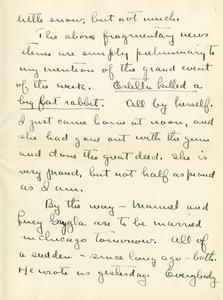 little snow, but not much.
The above fragmentary news
items are simply preliminary to
my mention of the grand event
of the week. Estella killed a
big fat rabbit. All by herself.
I just came home at noon, and
she had gone out with the gun
and done the great deed. She is
very proud, but not half as proud
as I am.
By the way - Manuel and
Lucy are to be married
in Chicago tomorrow. All of
a sudden - since long ago - both.
He wrote us yesterday. Everybody